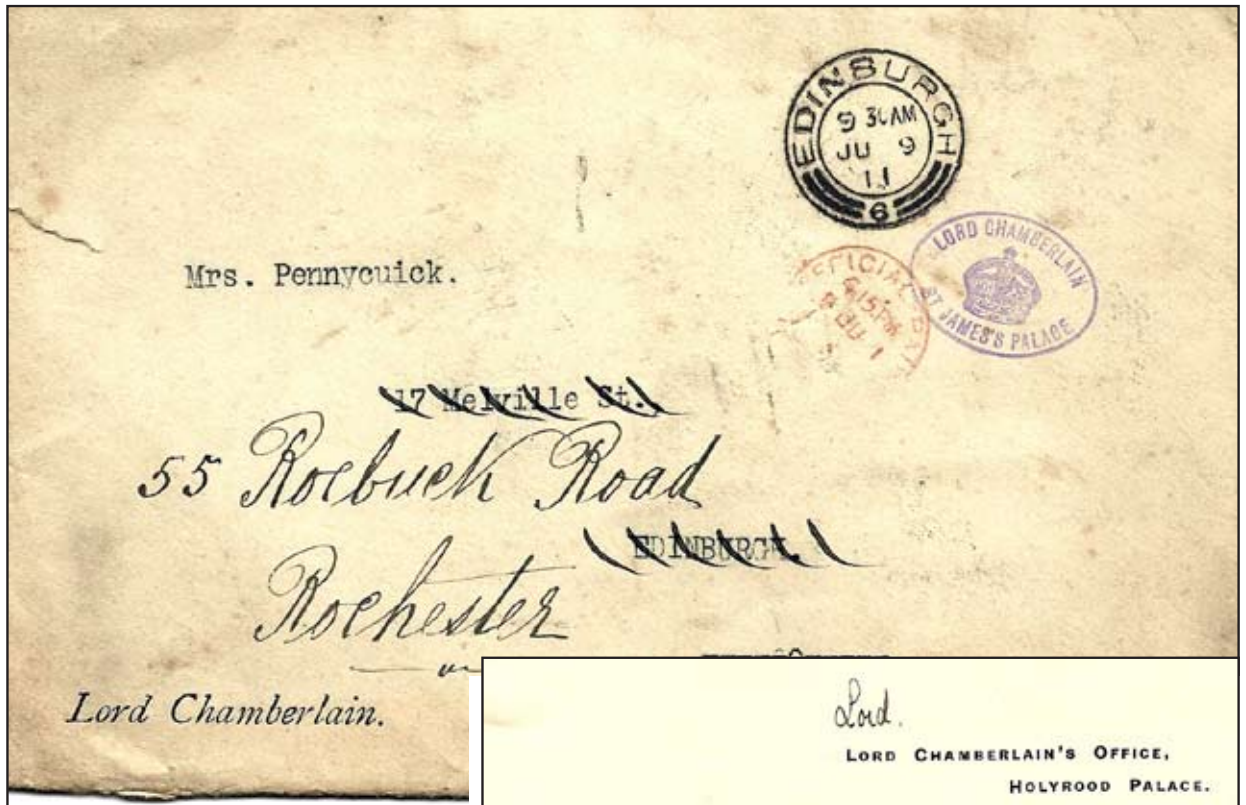 EDINBURGH
9 30AM
JU 9
11
6
LORD CHAMBERLAIN
ST JAMES'S PALACE
OFFICIAL PAI
Mrs. Pennycuick.
17 Melville St.
55 Roebuck Road
EDINBURGH.
Rochester
Lord Chamberlain.
Lord.
LORD CHAMBERLAIN'S OFFICE,
HOLYROOD PALACE.